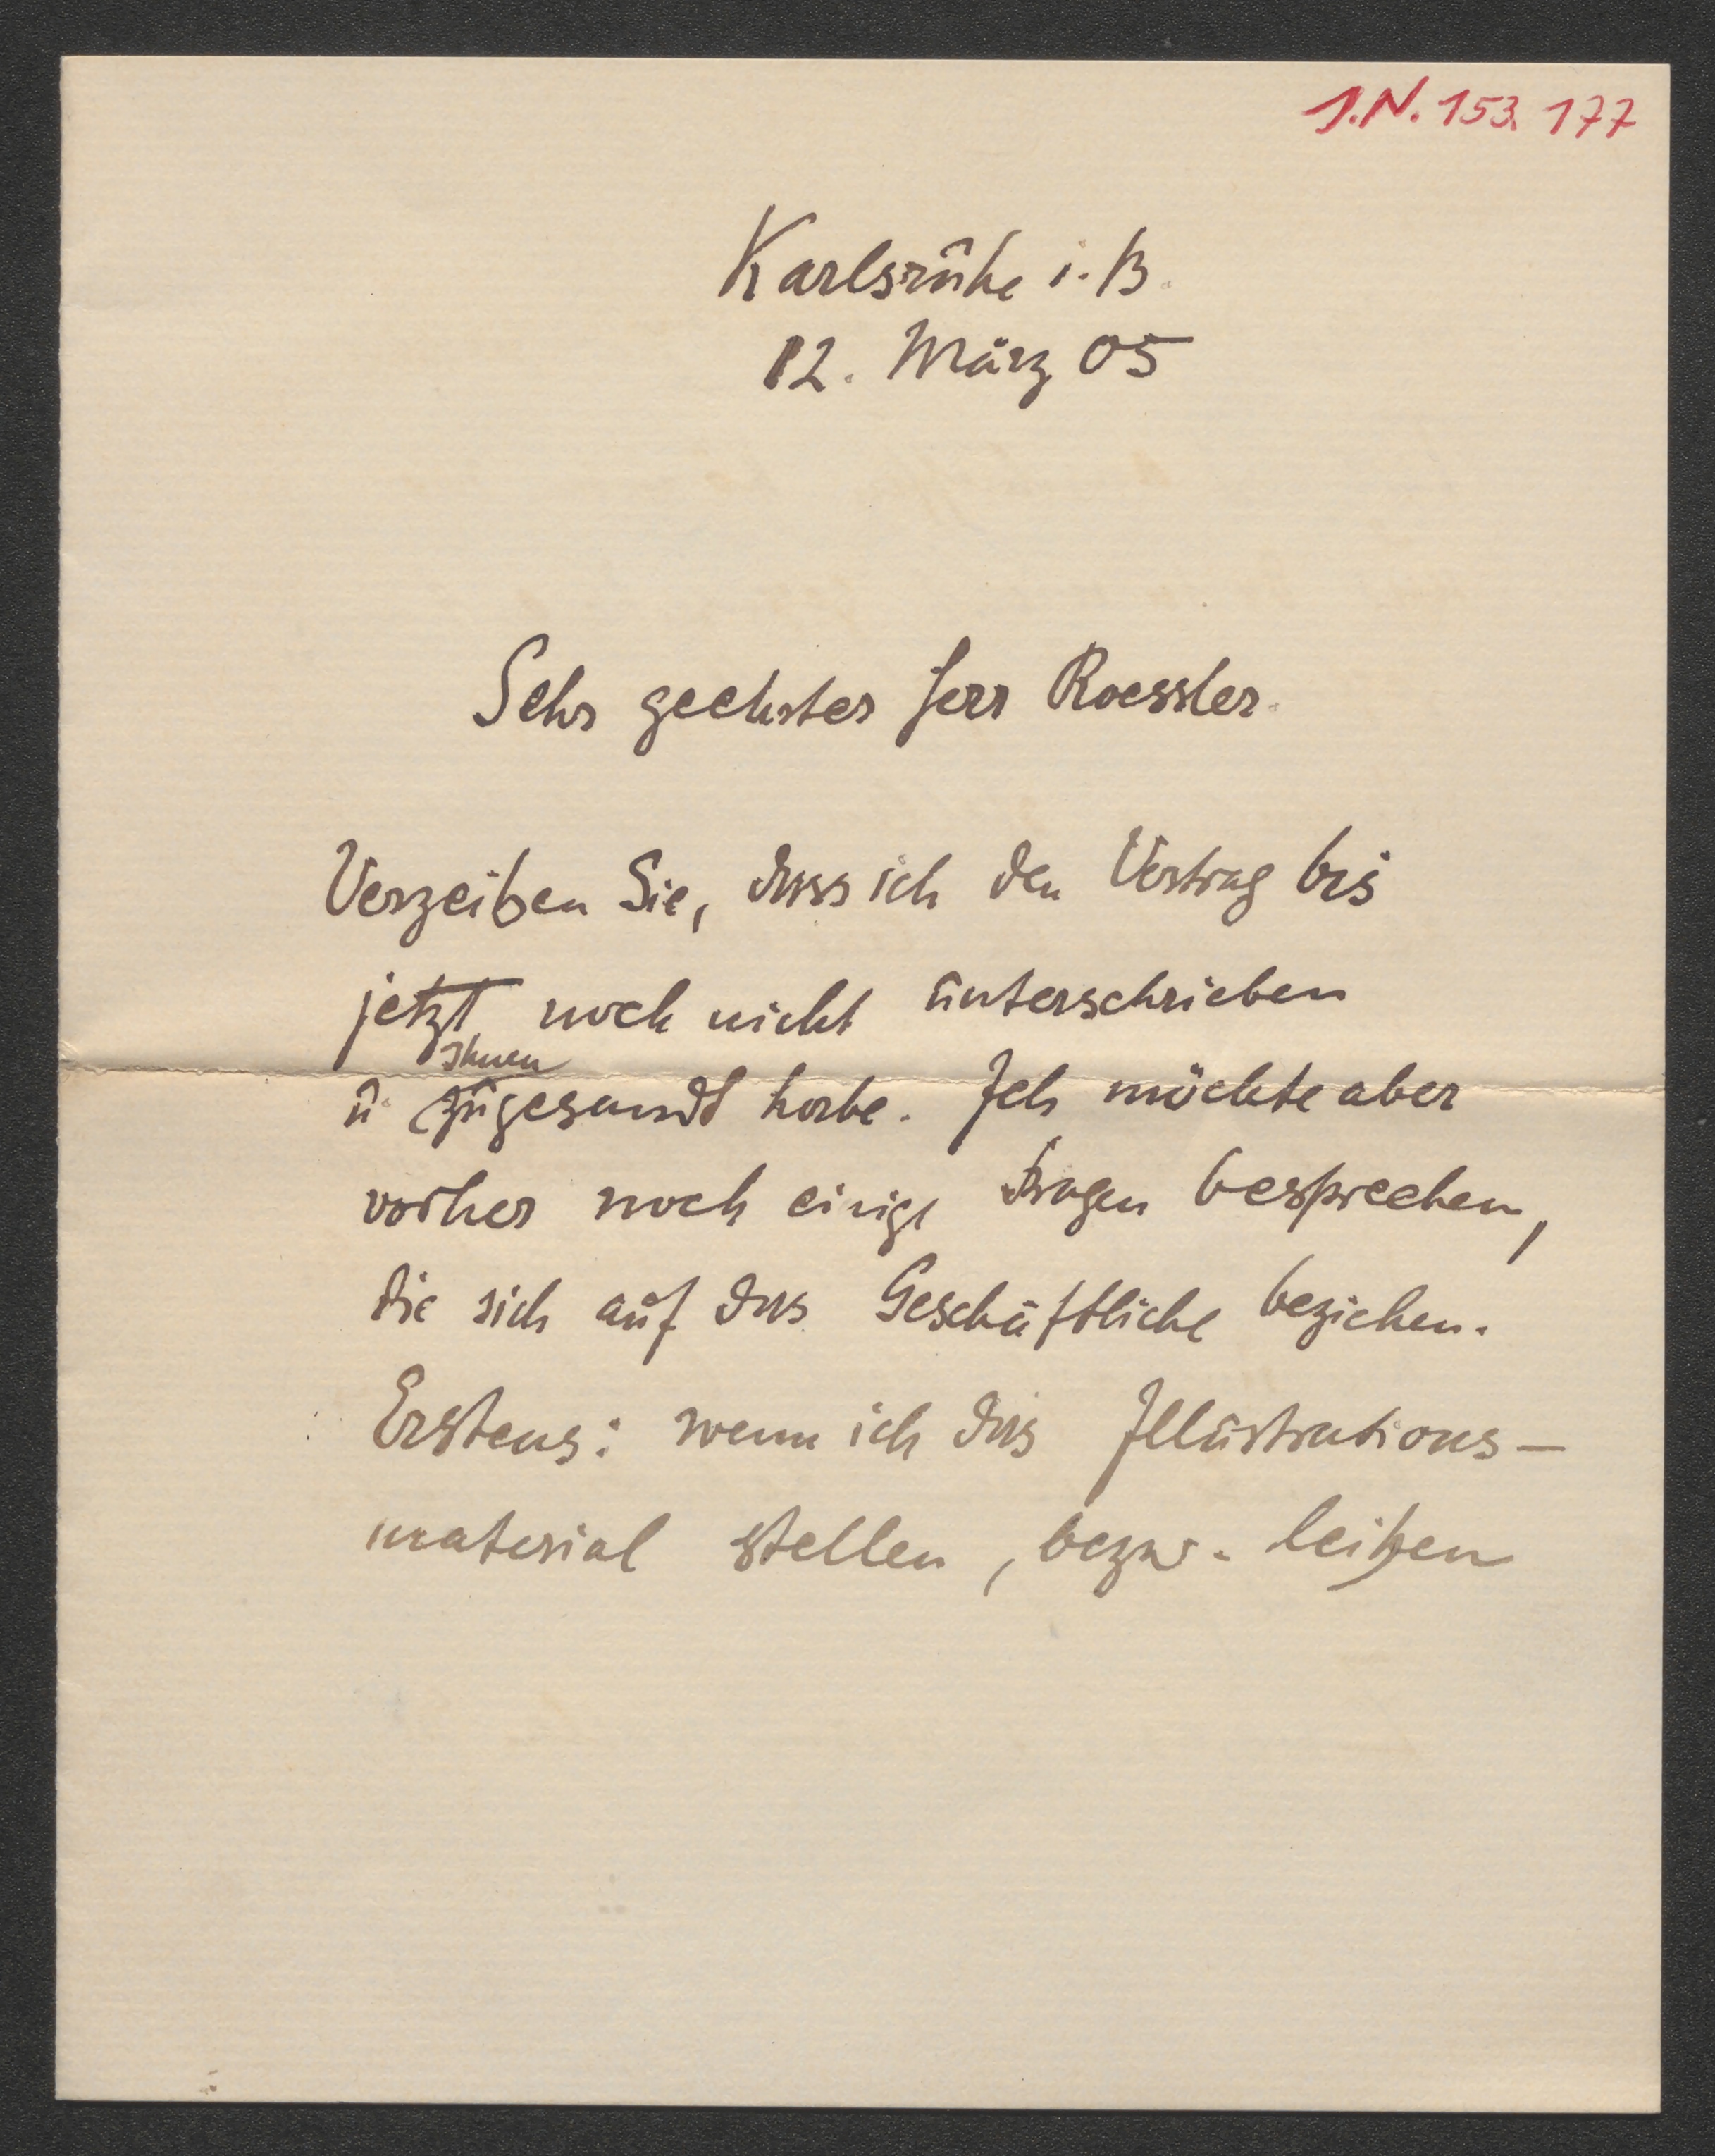 J.N. 153.177
Karlsruhe i. B.
12. März 05
Sehr geehrter Herr Roessler.
Verzeihen Sie, dass ich den Vertrag bis
jetzt noch nicht unterschrieben
Ihnen
u. zugesandt habe. Ich möchte aber
vorher noch einige Fragen besprechen,
die sich auf das Geschäftliche beziehen.
Erstens: wenn ich das Illustrations-
material stellen, bezw. leihen